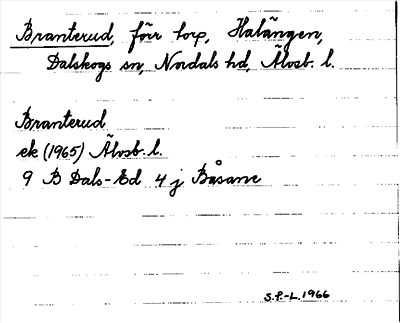 Branterud, förr torp, Halängen,
Dalskogs sn, Nordals hd, Älvsb. l.
Branterud
ek (1965) Älvsb. l.
9 B Dals-Ed 4 j Båsane
S.P.-L. 1966